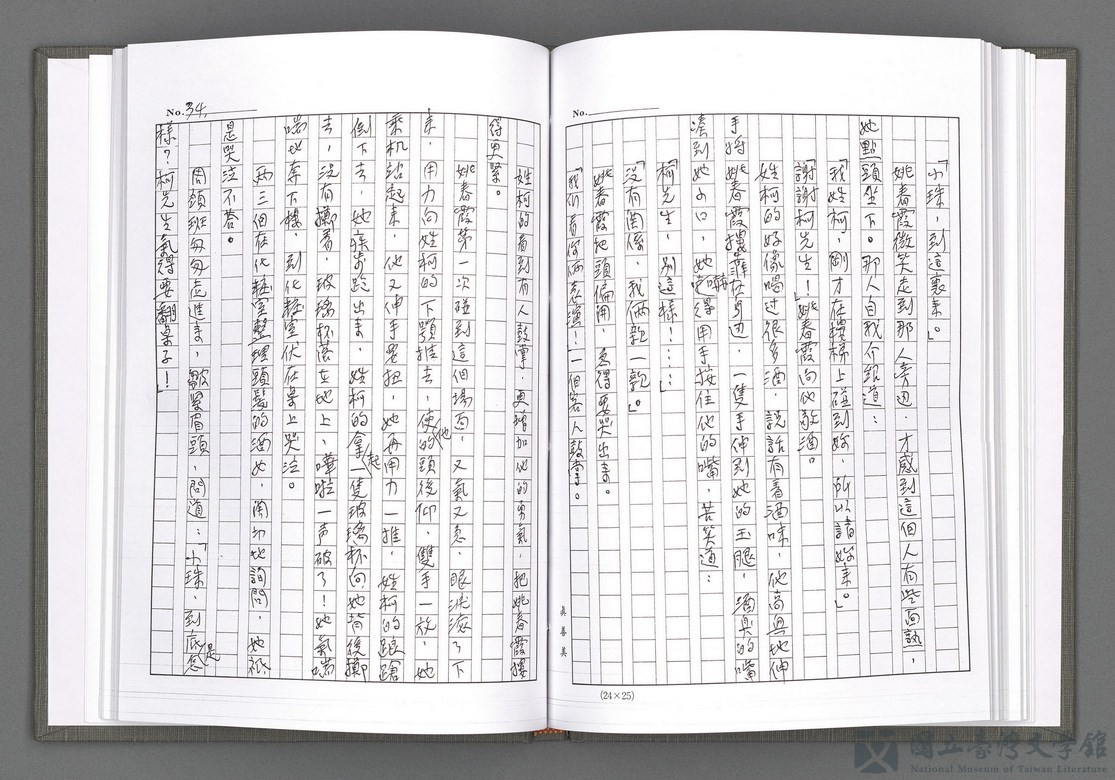 No.
「小珠，到這裏來」。
姚春霞微笑走到那人旁邊．才感到這個人有些面熟，
她點頭坐下。那人自我介紹道：
「我姓柯，剛才在樓梯上碰到妳．所以請妳來」。
「謝謝柯先生！」姚春霞向他敬酒。
姓柯的好像喝过很多酒．說話有着酒味．他高興地伸
手將姚春霞摟在身边．一隻手伸到她的玉腿．酒臭的嘴
湊到她的口，她嚇得用手按住他的嘴．苦笑道：
「柯先生，別這樣！……」
「沒有関係，我倆親一親」。
姚春霞把頭偏開．急得要哭出來。
「我们看你倆表演！」一個客人鼓掌。
姓柯的看到有人鼓掌．更增加他的勇氣．把姚春霞摟
得更緊。
姚春霞第一次碰到這個場面．又氣又急．眼淚流了下
來．用力向姓柯的下顎推去．使他的頭後仰．雙手一放．她
乘机站起來．他又伸手要扭．她再用力一推．姓柯的踉蹌
倒下去，她疾步跑出來．姓柯的拿起一隻玻璃杯向她背後擲
去，沒有擲着．玻璃杯落在地上．嘩啦一声破了！她氣喘
喘地奔下樓．到化粧室伏在桌上哭泣。
兩三個在化粧室整理頭髮的酒女．関切地詢問．她祇
是哭泣不答。
周領班匆匆走進來，皺緊眉頭．問道：「小珠．到底是怎
樣？柯先生氣得要翻桌子！」
No. 34.
真善美
(24×25)
國立臺灣文學館
National Museum of Taiwan Literature